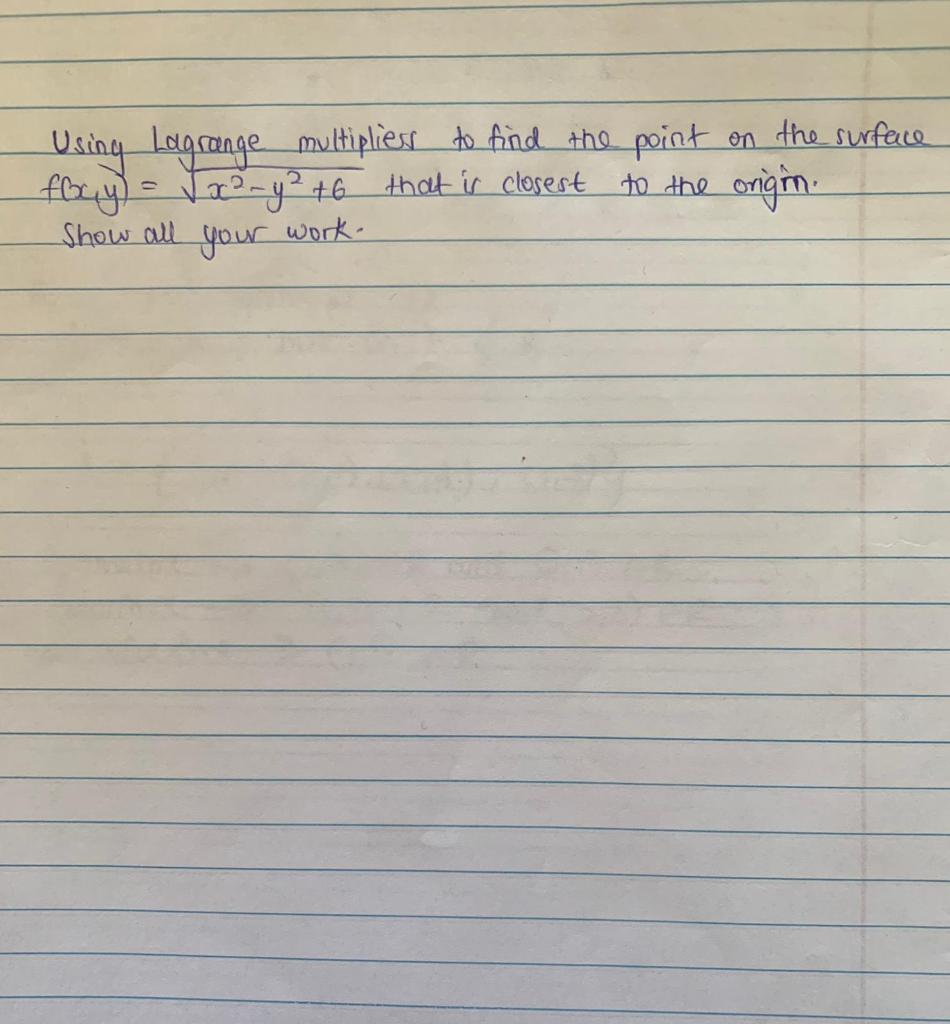 Using Lagrange multipliess to find the point on the surface
f(x,y) = √x²-y²+6 that is closest to the origin.
Show all your work.